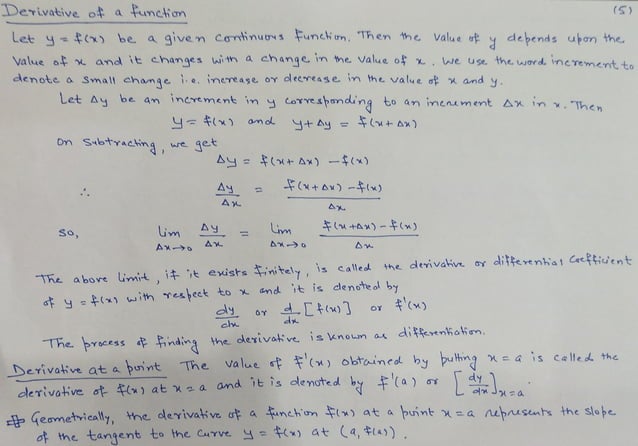 Derivative of a function (5)
Let y = f(x) be a given continuous function. Then the value of y depends upon the
value of x and it changes with a change in the value of x. We use the word increment to
denote a small change i.e. increase or decrease in the value of x and y.
Let Δy be an increment in y corresponding to an increment Δx in x. Then
y = f(x) and y+Δy = f(x+Δx)
On Subtracting, we get
Δy = f(x+Δx) – f(x)
∴ Δy/Δx = (f(x+Δx) – f(x))/Δx
So, Lim Δx→0 Δy/Δx = Lim Δx→0 (f(x+Δx) – f(x))/Δx
The above limit, if it exists finitely, is called the derivative or differential Coefficient
of y = f(x) with respect to x and it is denoted by
dy/dx or d/dx [f(x)] or f'(x)
The process of finding the derivative is known as differentiation.
Derivative at a point The value of f'(x) obtained by putting x = a is called the
derivative of f(x) at x = a and it is denoted by f'(a) or [dy/dx]x=a
Geometrically, the derivative of a function f(x) at a point x = a represents the slope
of the tangent to the curve y = f(x) at (a, f(a)).